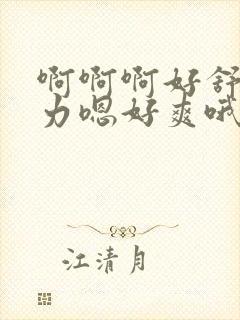 啊啊啊好舒
力嗯好爽哦
江清月